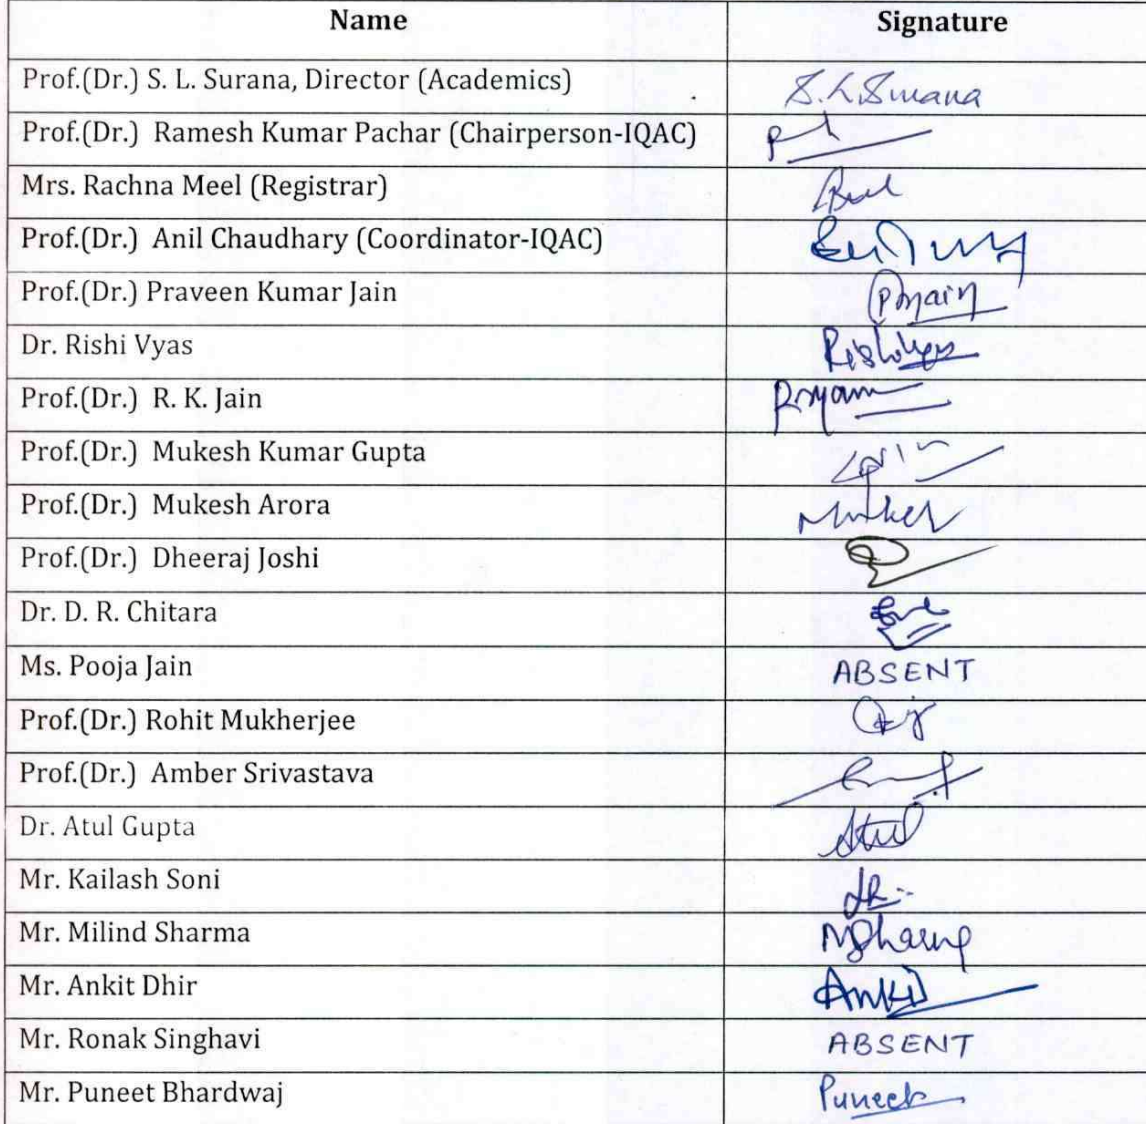 Name Signature
Prof.(Dr.) S. L. Surana, Director (Academics) S.L.Surana
Prof.(Dr.) Ramesh Kumar Pachar (Chairperson-IQAC)
Mrs. Rachna Meel (Registrar)
Prof.(Dr.) Anil Chaudhary (Coordinator-IQAC)
Prof.(Dr.) Praveen Kumar Jain
Dr. Rishi Vyas
Prof.(Dr.) R. K. Jain
Prof.(Dr.) Mukesh Kumar Gupta
Prof.(Dr.) Mukesh Arora
Prof.(Dr.) Dheeraj Joshi
Dr. D. R. Chitara
Ms. Pooja Jain ABSENT
Prof.(Dr.) Rohit Mukherjee
Prof.(Dr.) Amber Srivastava
Dr. Atul Gupta Atul
Mr. Kailash Soni
Mr. Milind Sharma
Mr. Ankit Dhir Ankit
Mr. Ronak Singhavi ABSENT
Mr. Puneet Bhardwaj Puneet